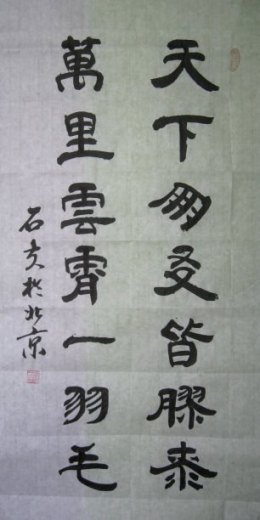 天下朋友皆膠桼
萬里雲霄一羽毛
石於北京